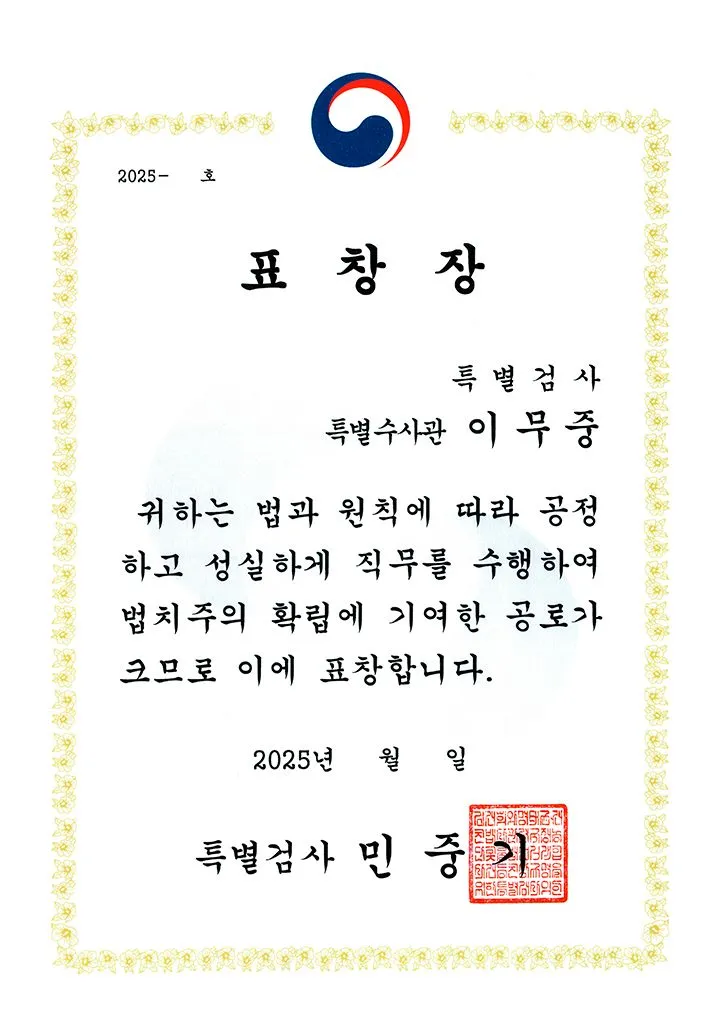 2025- 호
표 창 장
특 별 검 사
특별수사관 이 무 중
귀하는 법과 원칙에 따라 공정
하고 성실하게 직무를 수행하여
법치주의 확립에 기여한 공로가
크므로 이에 표창합니다.
2025년 월 일
특별검사 민 중 기